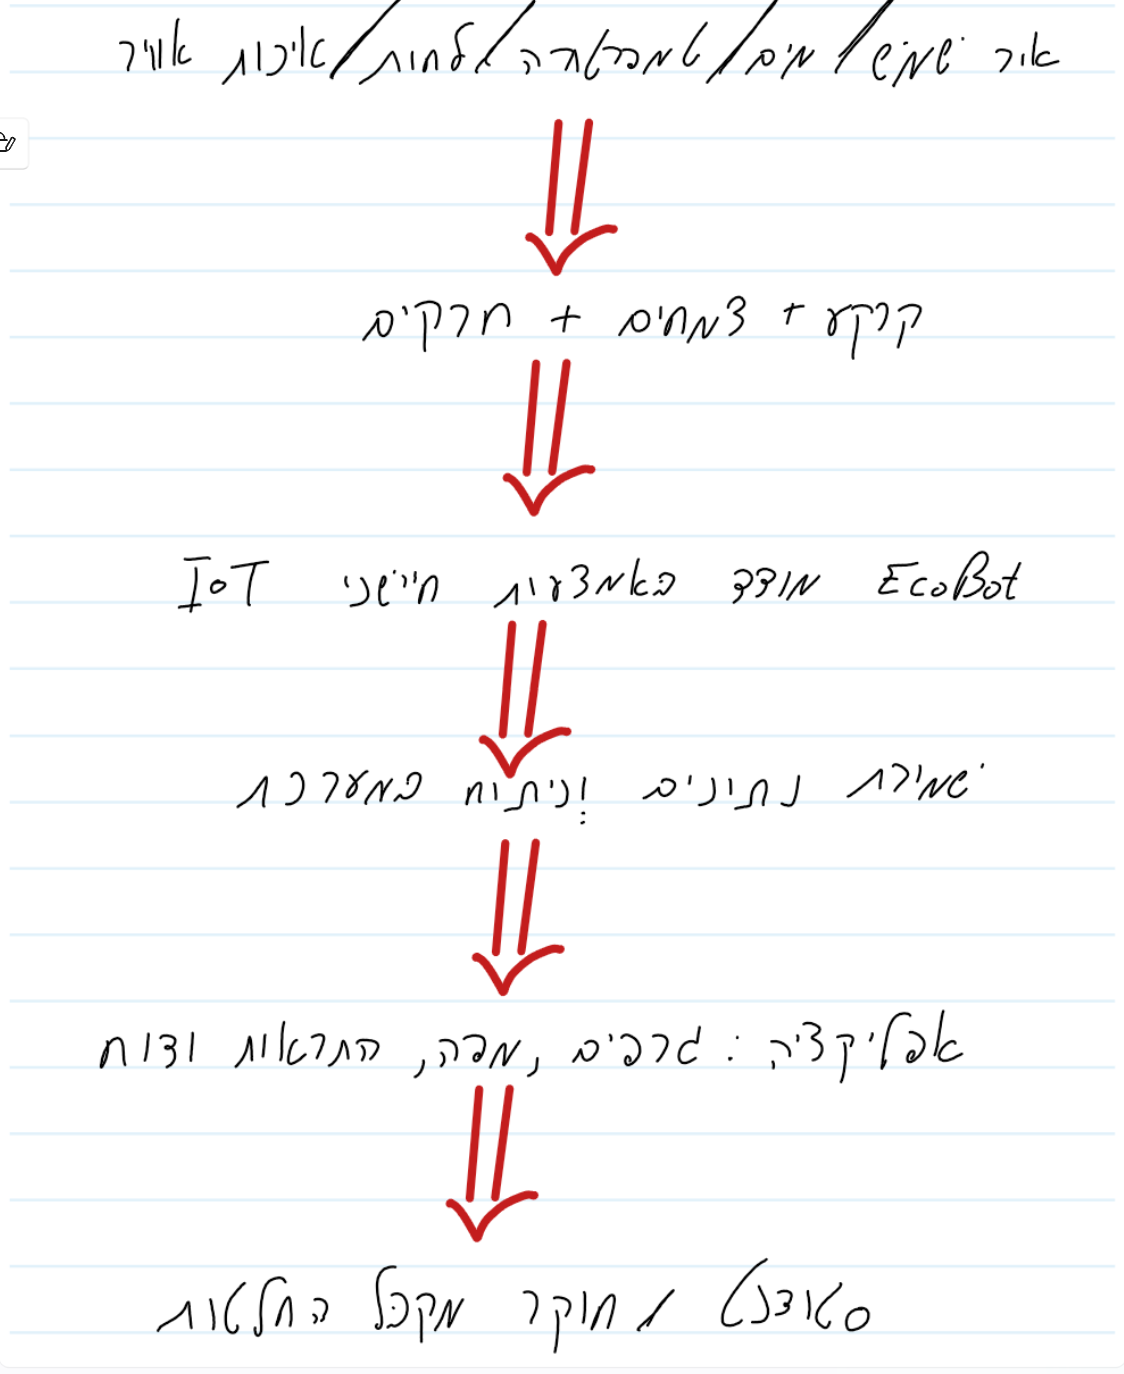 אור שמש / מים / טמפרטורה / לחות / איכות אוויר
קרקע + צמחים + חרקים
EcoBot מודד באמצעות חיישני IoT
שמירת נתונים וניתוח במערכת
אפליקציה : גרפים , מפה, התראות ודוח
סטודנט / חוקר מקבל החלטות